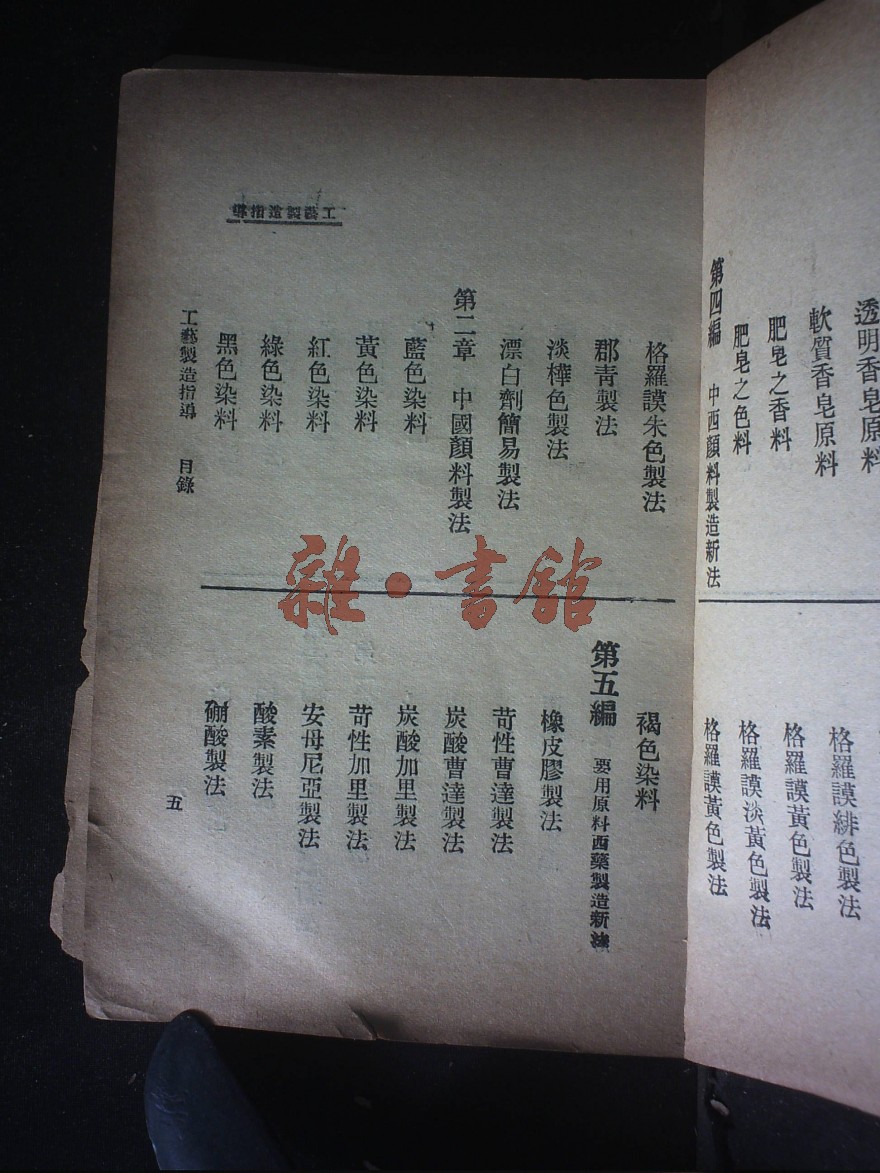 透明香皂原料
軟質香皂原料
肥皂之香料
肥皂之色料
第四編 中西顏料製造新法
格羅謨緋色製法
格羅謨黃色製法
格羅謨淡黃色製法
格羅謨黃色製法
格羅謨朱色製法
郡青製法
淡樺色製法
漂白劑簡易製法
第二章 中國顏料製法
藍色染料
黃色染料
紅色染料
綠色染料
黑色染料
褐色染料
第五編 要用原料西藥製造新法
橡皮膠製法
苛性曹達製法
炭酸曹達製法
炭酸加里製法
苛性加里製法
安母尼亞製法
酸素製法
硼酸製法
工藝製造指導 目錄
五
工藝製造指導
雜·書館